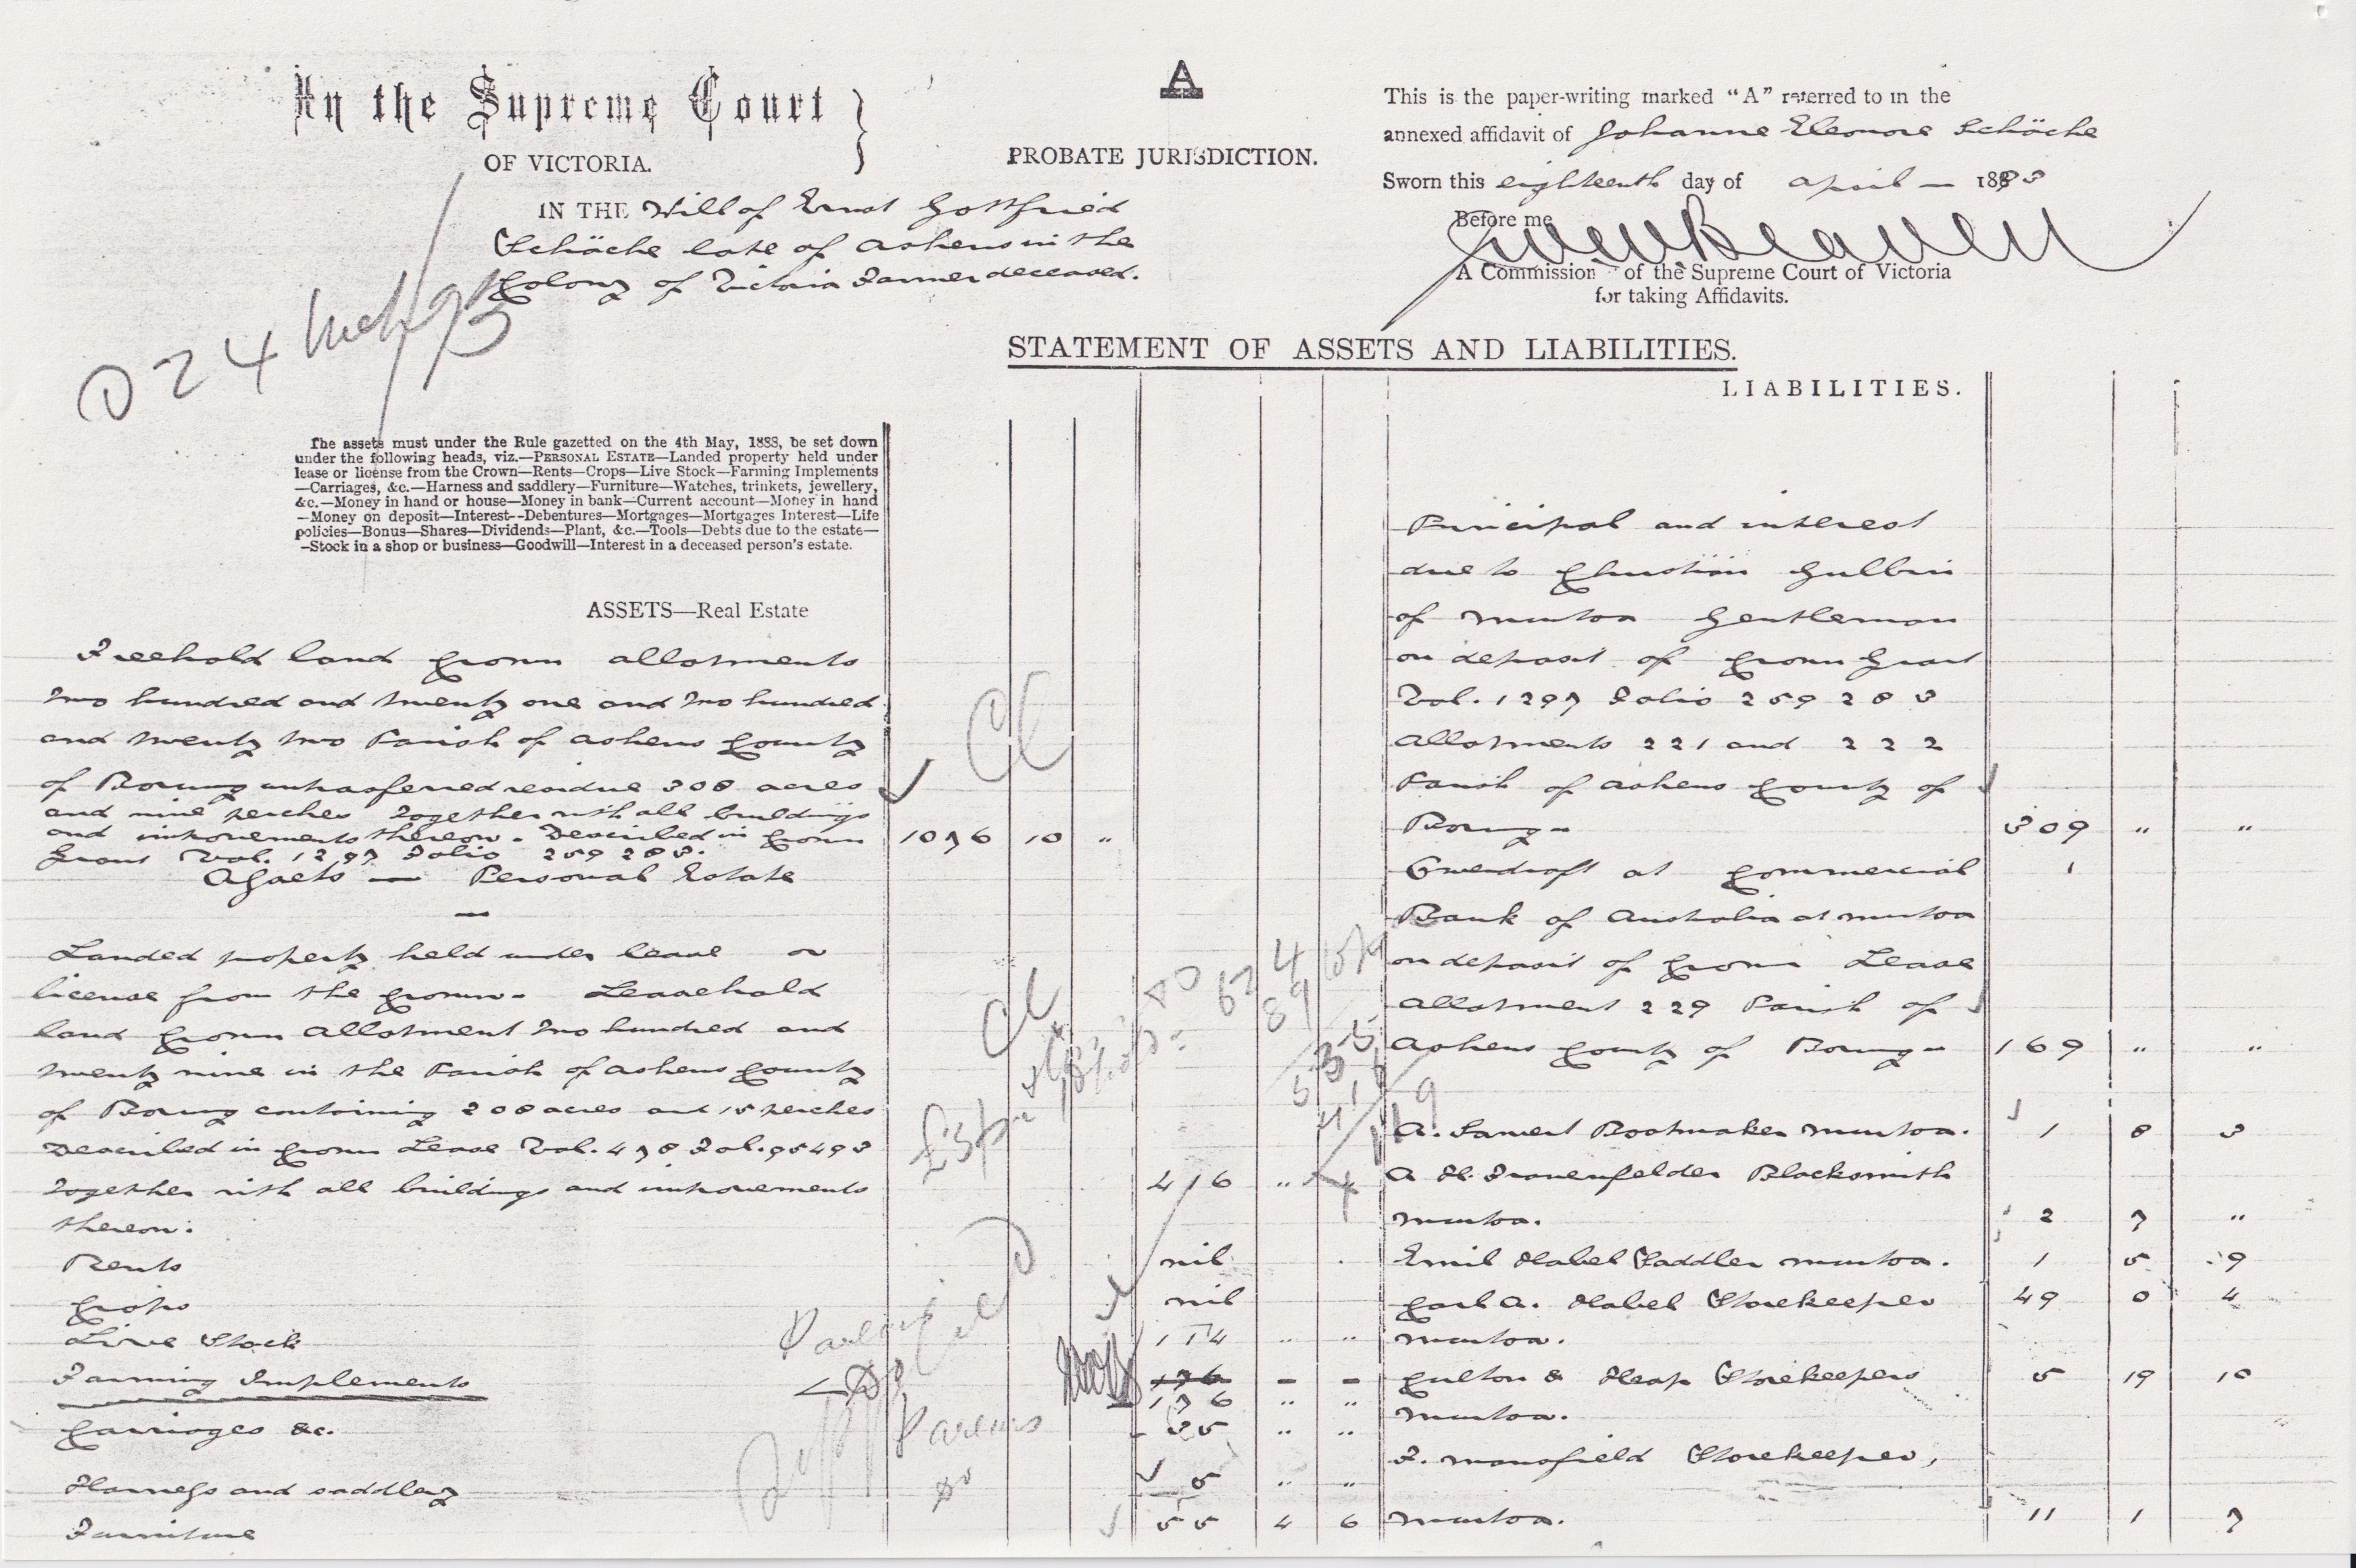 In the Supreme Court
OF VICTORIA.
A
PROBATE JURISDICTION.
This is the paper-writing marked "A" referred to in the
annexed affidavit of Johanne Eleonore Schäche
Sworn this eighteenth day of april — 1893
Before me
A Commission of the Supreme Court of Victoria
for taking Affidavits.
IN THE Will of Ernst Gottfried
Schäche late of Ashens in the
Colony of Victoria Farmer deceased.
D 24 Mch/93
STATEMENT OF ASSETS AND LIABILITIES.
The assets must under the Rule gazetted on the 4th May, 1888, be set down
under the following heads, viz.—PERSONAL ESTATE—Landed property held under
lease or license from the Crown—Rents—Crops—Live Stock—Farming Implements
—Carriages, &c.—Harness and saddlery—Furniture—Watches, trinkets, jewellery,
&c.—Money in hand or house—Money in bank—Current account—Money in hand
—Money on deposit—Interest--Debentures—Mortgages—Mortgages Interest—Life
policies—Bonus—Shares—Dividends—Plant, &c.—Tools—Debts due to the estate—
-Stock in a shop or business—Goodwill—Interest in a deceased person's estate.
ASSETS—Real Estate
Freehold land Crown allotments
two hundred and twenty one and two hundred
and twenty two Parish of Ashens County
of Borung untrasferred residue 308 acres
and nine perches together with all buildings
and improvements thereon. Described in Crown
Grant Vol. 1297 Folio 259 283. 1076 10 "
Assets — Personal Estate
—
Landed property held under lease or
license from the Crown. Leasehold
land Crown Allotment two hundred and
twenty nine in the Parish of Ashens County
of Borung containing 208 acres and 15 perches
Described in Crown Lease Vol. 478 Fol. 95493
together with all buildings and improvements 416 " "
thereon.
Rents nil
Crops nil
Live Stock 114 " "
Farming Implements 176 - -
176 " "
Carriages &c. 35 " "
Harness and saddlery 5 " "
Furniture 55 4 6
LIABILITIES.
Principal and interest
due to Christian Gulbin
of Murtoa Gentleman
on deposit of Crown Grant
Vol. 1297 Folio 259 283
Allotments 221 and 222
Parish of Ashens County of
Borung - 309 " "
Overdraft at Commercial
Bank of Australia at Murtoa
on deposit of Crown Lease
Allotment 229 Parish of
Ashens County of Borung - 169 " "
A. Bootmaker Murtoa. 1 8 3
A H. Frauenfelder Blacksmith
Murtoa. 2 7 "
Emil Habel Saddler Murtoa. 1 5 9
Carl A. Habel Storekeeper 49 0 4
Murtoa.
Culton & Heap Storekeepers 5 19 10
Murtoa.
F. Mansfield Storekeeper,
Murtoa. 11 1 7